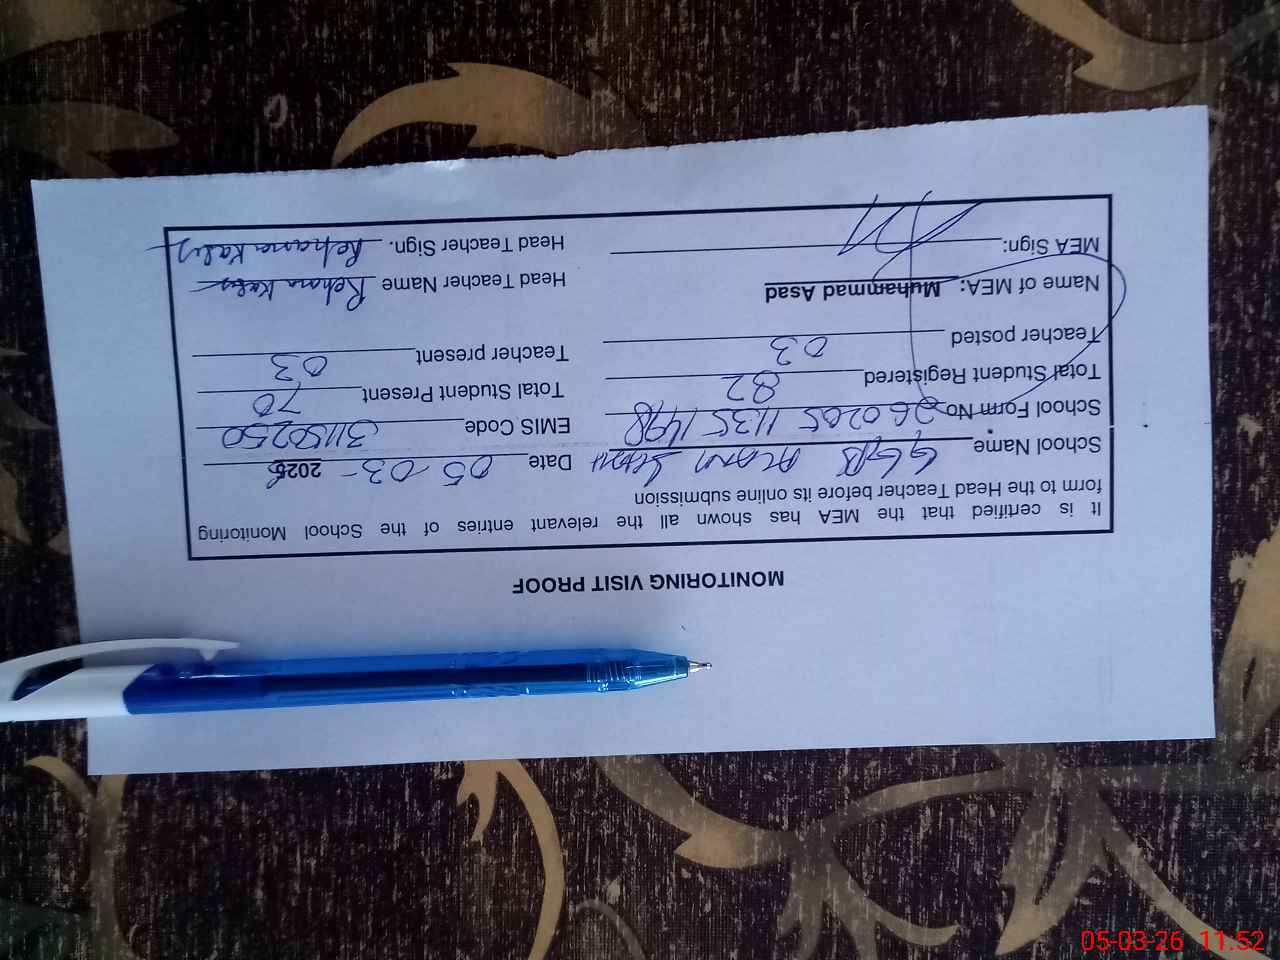 MONITORING VISIT PROOF
It is certified that the MEA has shown all the relevant entries of the School Monitoring
form to the Head Teacher before its online submission
School Name GGPS Date 05-03-2026
School Form No 260205 1135 1498 EMIS Code 31150250
Total Student Registered 82 Total Student Present 70
Teacher posted 03 Teacher present 03
Name of MEA: Muhammad Asad Head Teacher Name Rehana
MEA Sign: Head Teacher Sign. Rehana
05-03-26 11:52